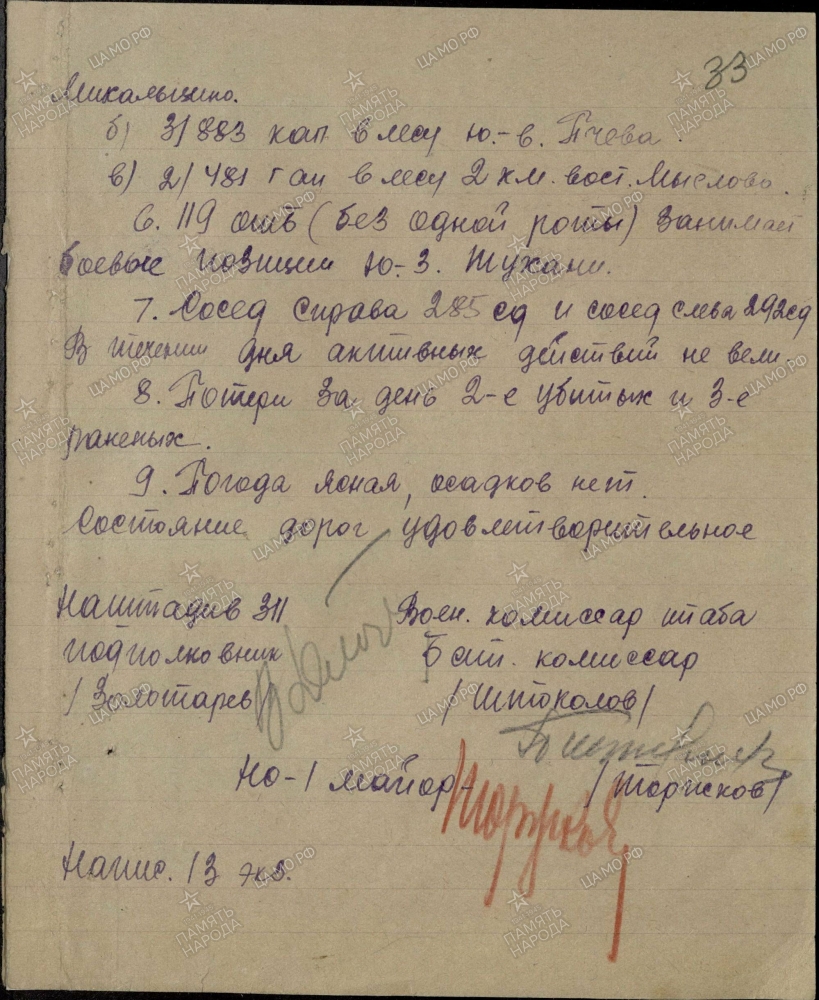 33
Михалыцино.
б) 3/883 кап в лесу ю.-в. Пчева.
в) 2/481 гап в лесу 2 км. вост. Мыслово.
6. 119 отб (без одной роты) занимает
боевые позиции ю-з. Тухани.
7. Сосед справа 285 сд и сосед слева 292 сд
В течении дня активных действий не вели.
8. Потери за день 2-е убитых и 3-е
раненых.
9. Погода ясная, осадков нет.
Состояние дорог удовлетворительное
Наштадив 311 Воен. комиссар штаба
подполковник Бат. комиссар
/Золотарев/ /Штоколов/
НО-1 майор- /Торжсков/
Напис. 13 экз.